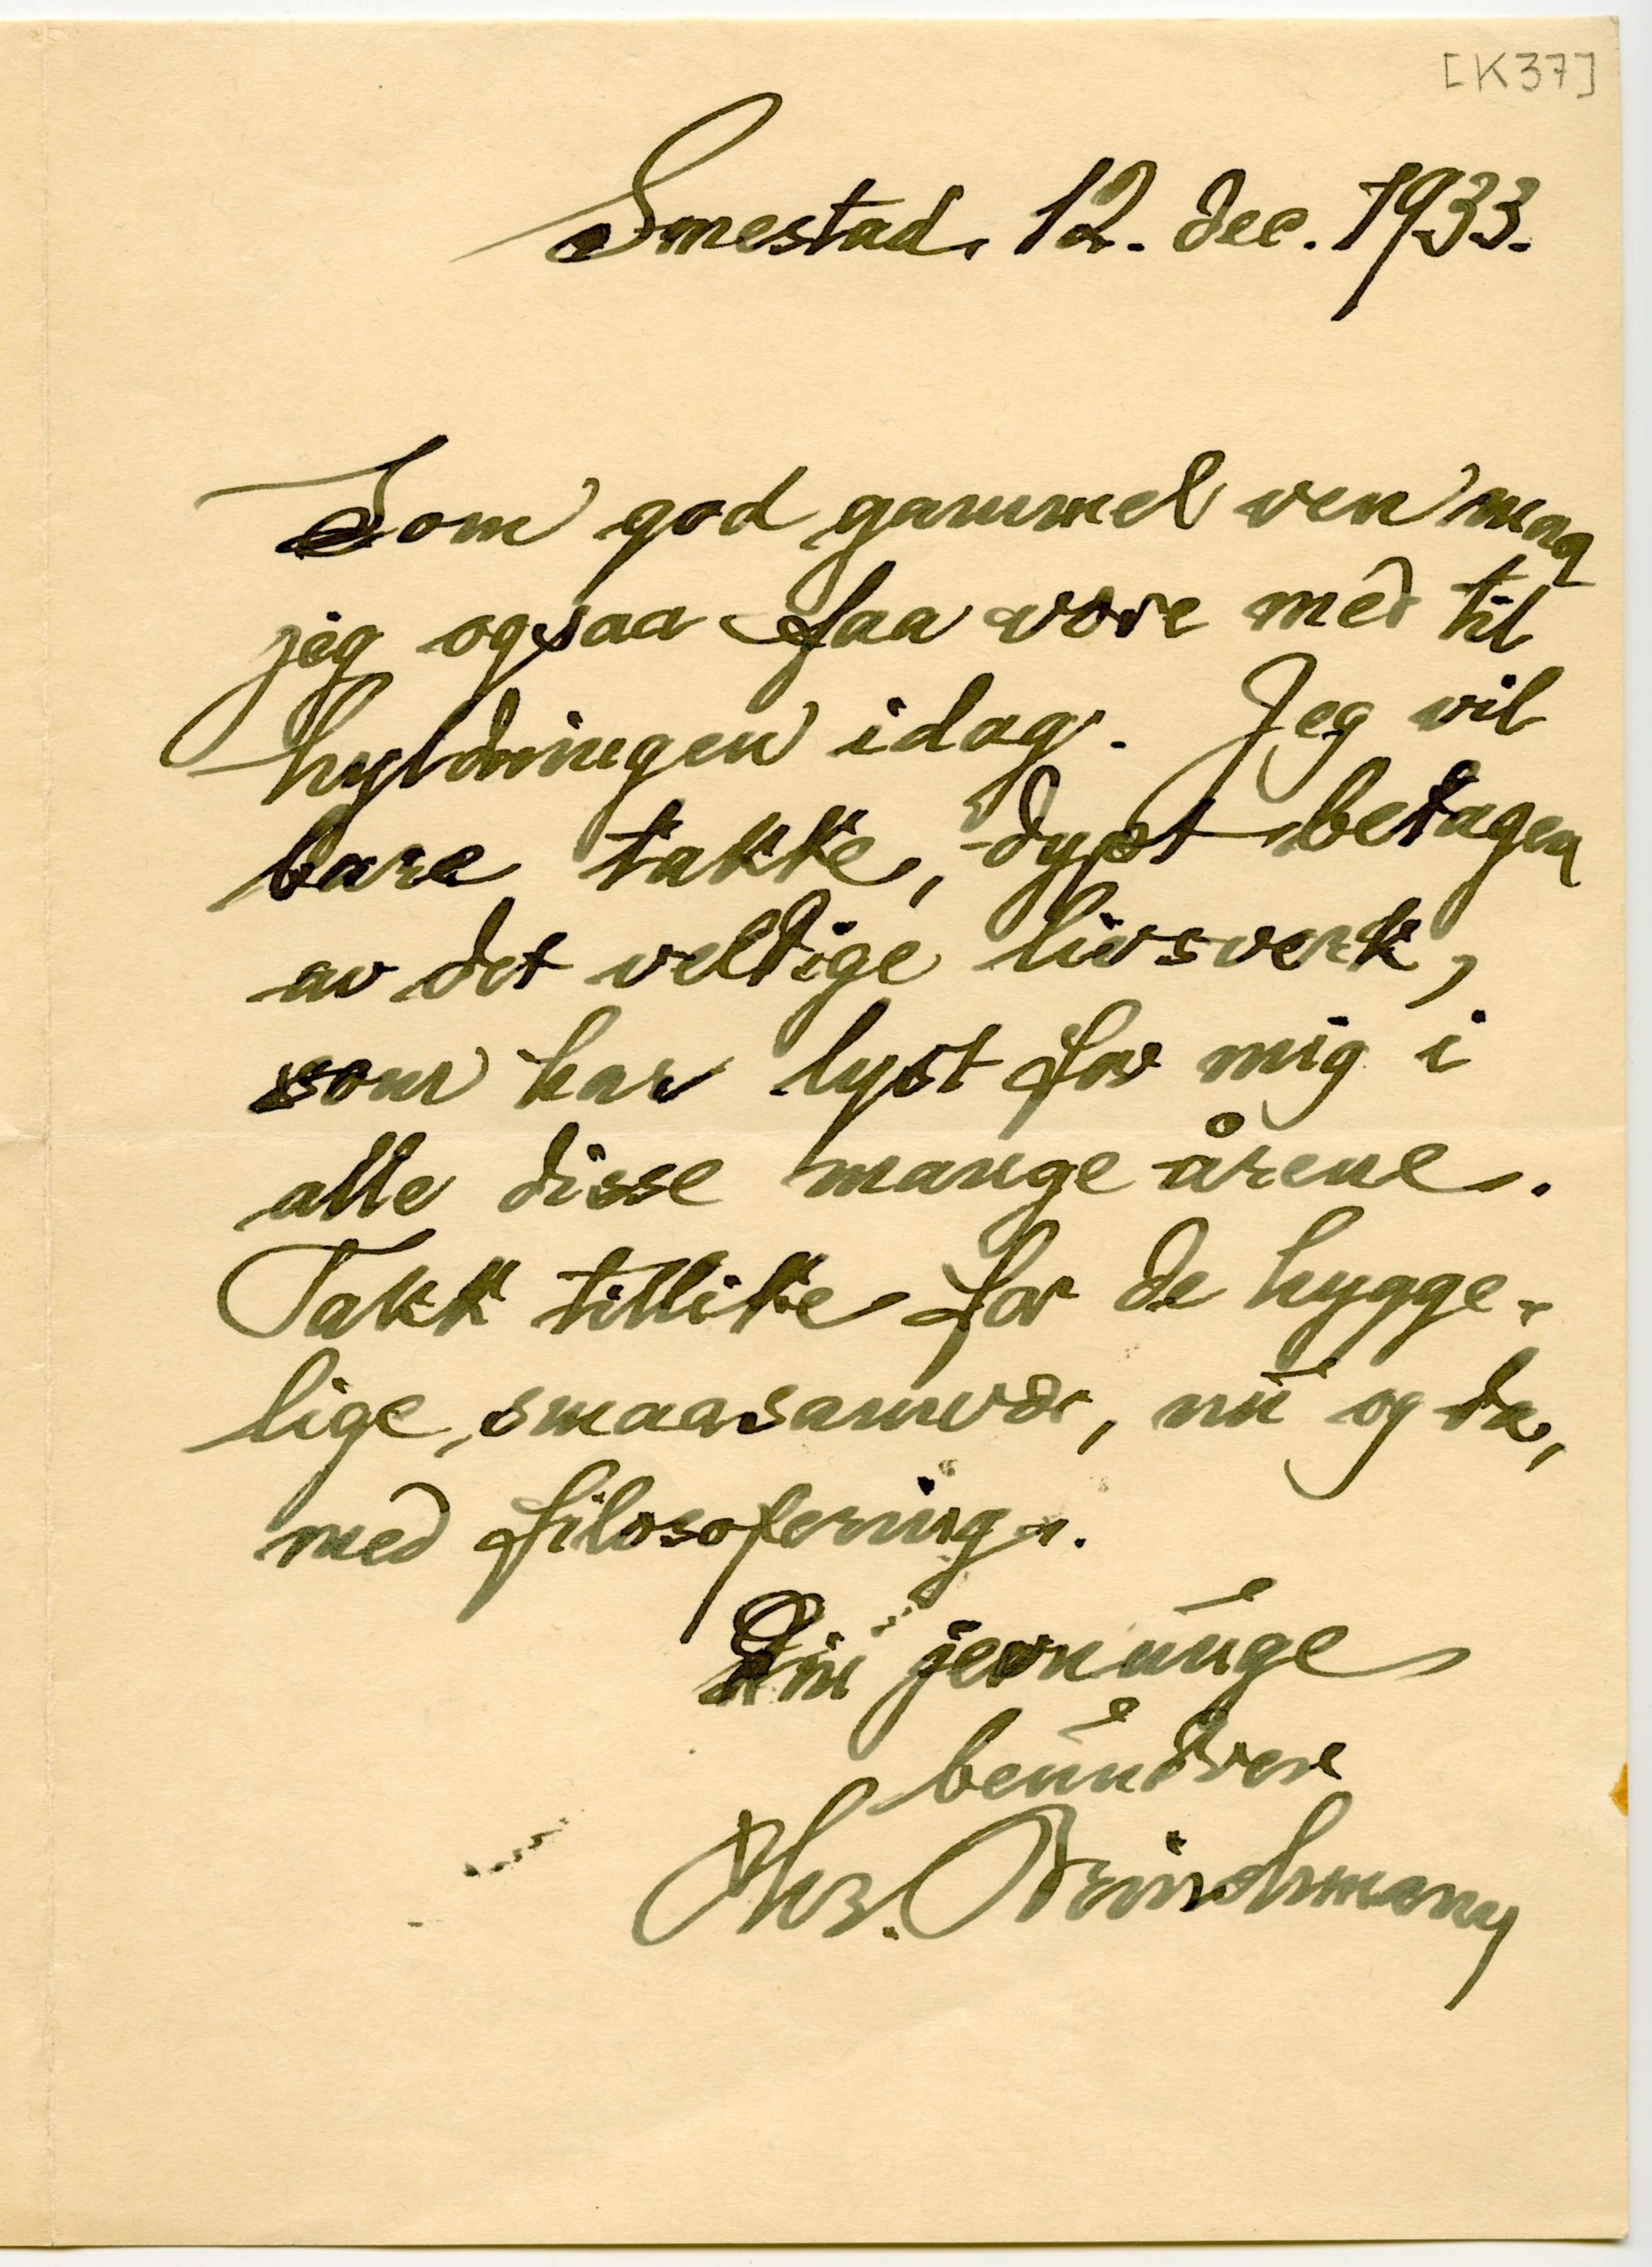 [K37]
Smestad, 12. dec. 1933.
Som god gammel ven maa
jeg ogsaa faa være med til
hyldningen idag. Jeg vil
bare takke, dypt betagen
av det veldige livsverk,
som har lyst for mig i
alle disse mange årene.
Takk tillike for de hygge-
lige smaasamvær, nu og da,
med filosofering.
Din jevnunge
beundrer
Chr. Brinchmann